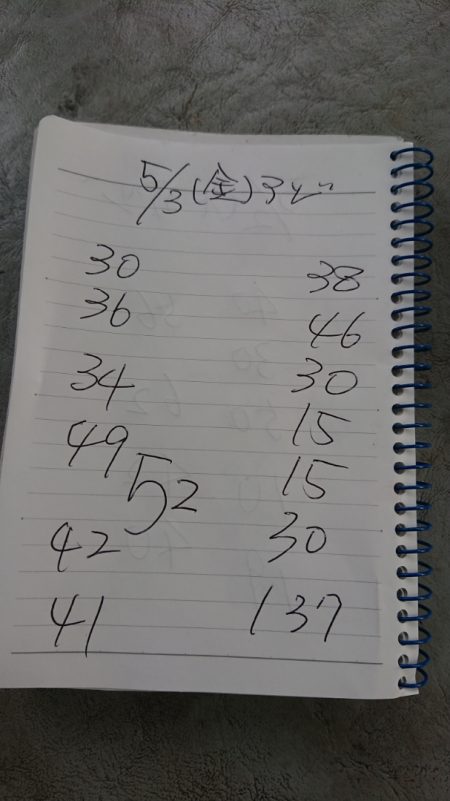 5/3(金)
30 38
36 46
34 30
49 15
52 15
42 30
41 137